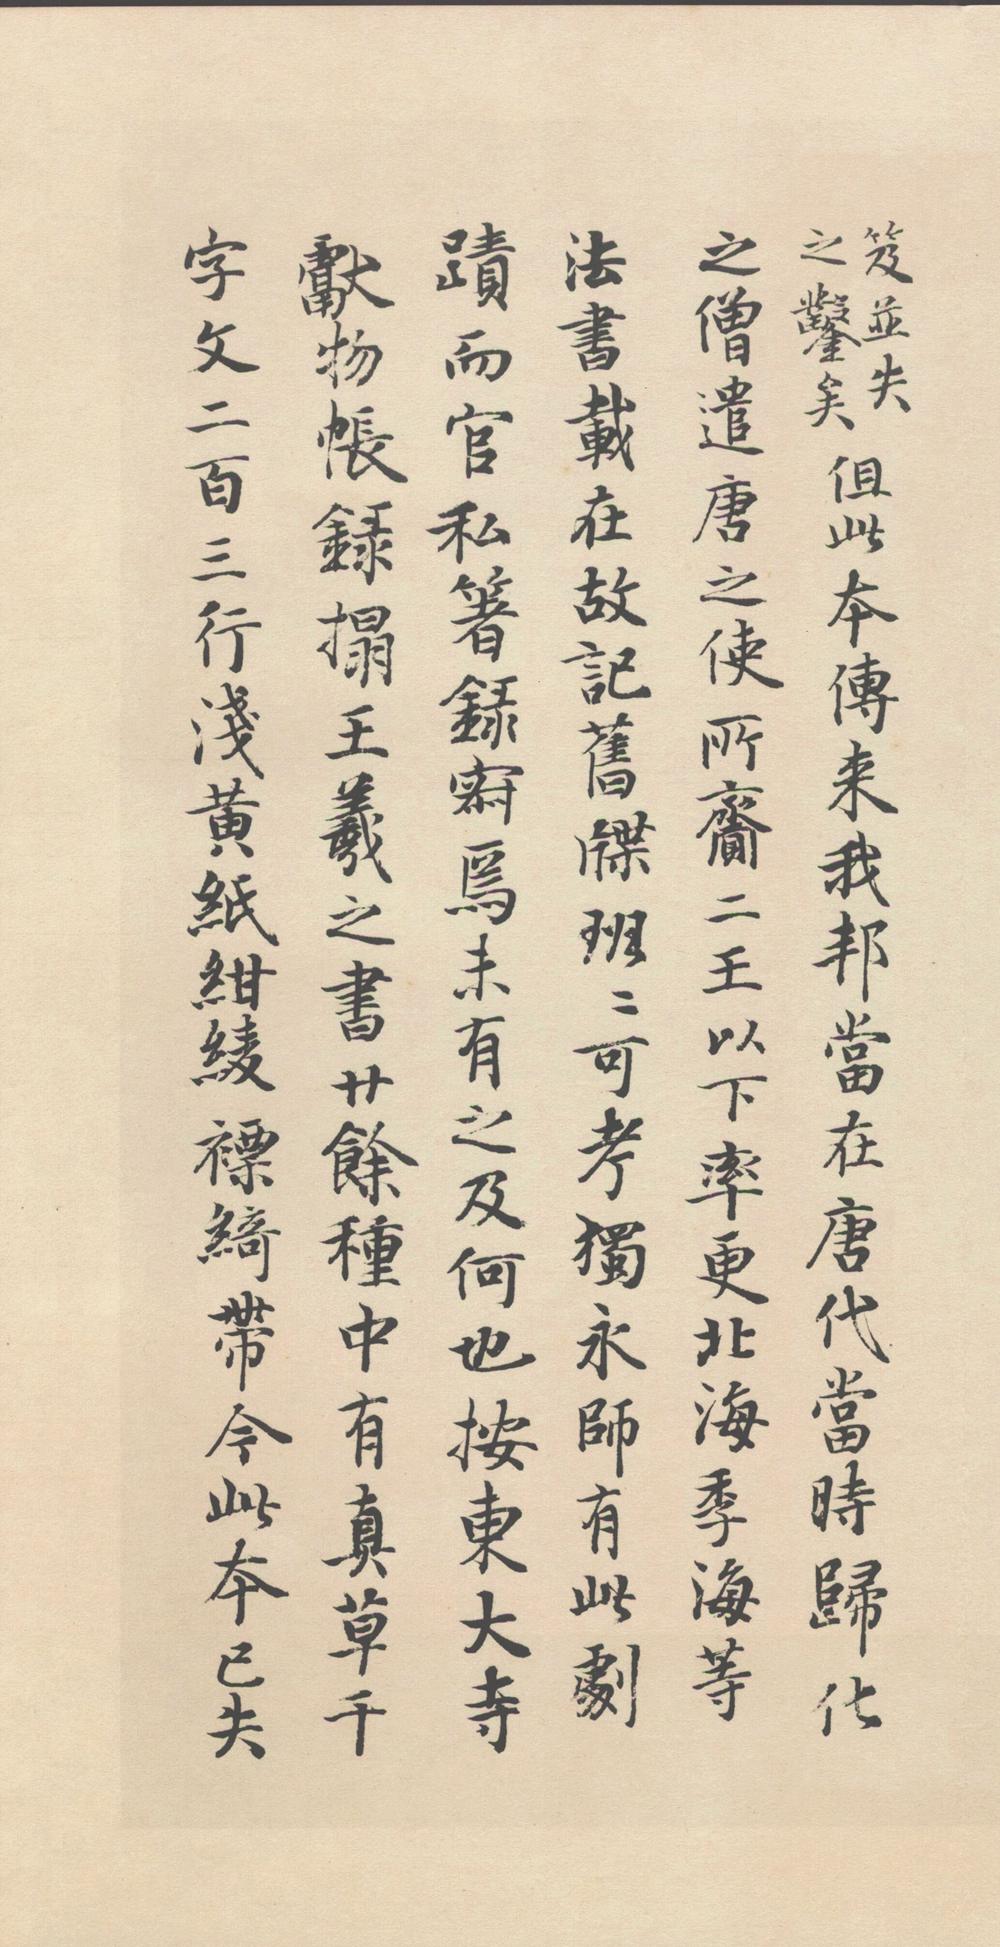 笈並失
之鑿矣
但此本傳来我邦當在唐代當時歸化
之僧遣唐之使所齎二王以下率更北海季海等
法書載在故記舊牒班〻可考獨永師有此劇
蹟而官私箸録䆮焉未有之及何也按東大寺
獻物帳録搨王羲之書廿餘種中有真草千
字文二百三行淺黄紙紺綾褾綺帶今此本已失